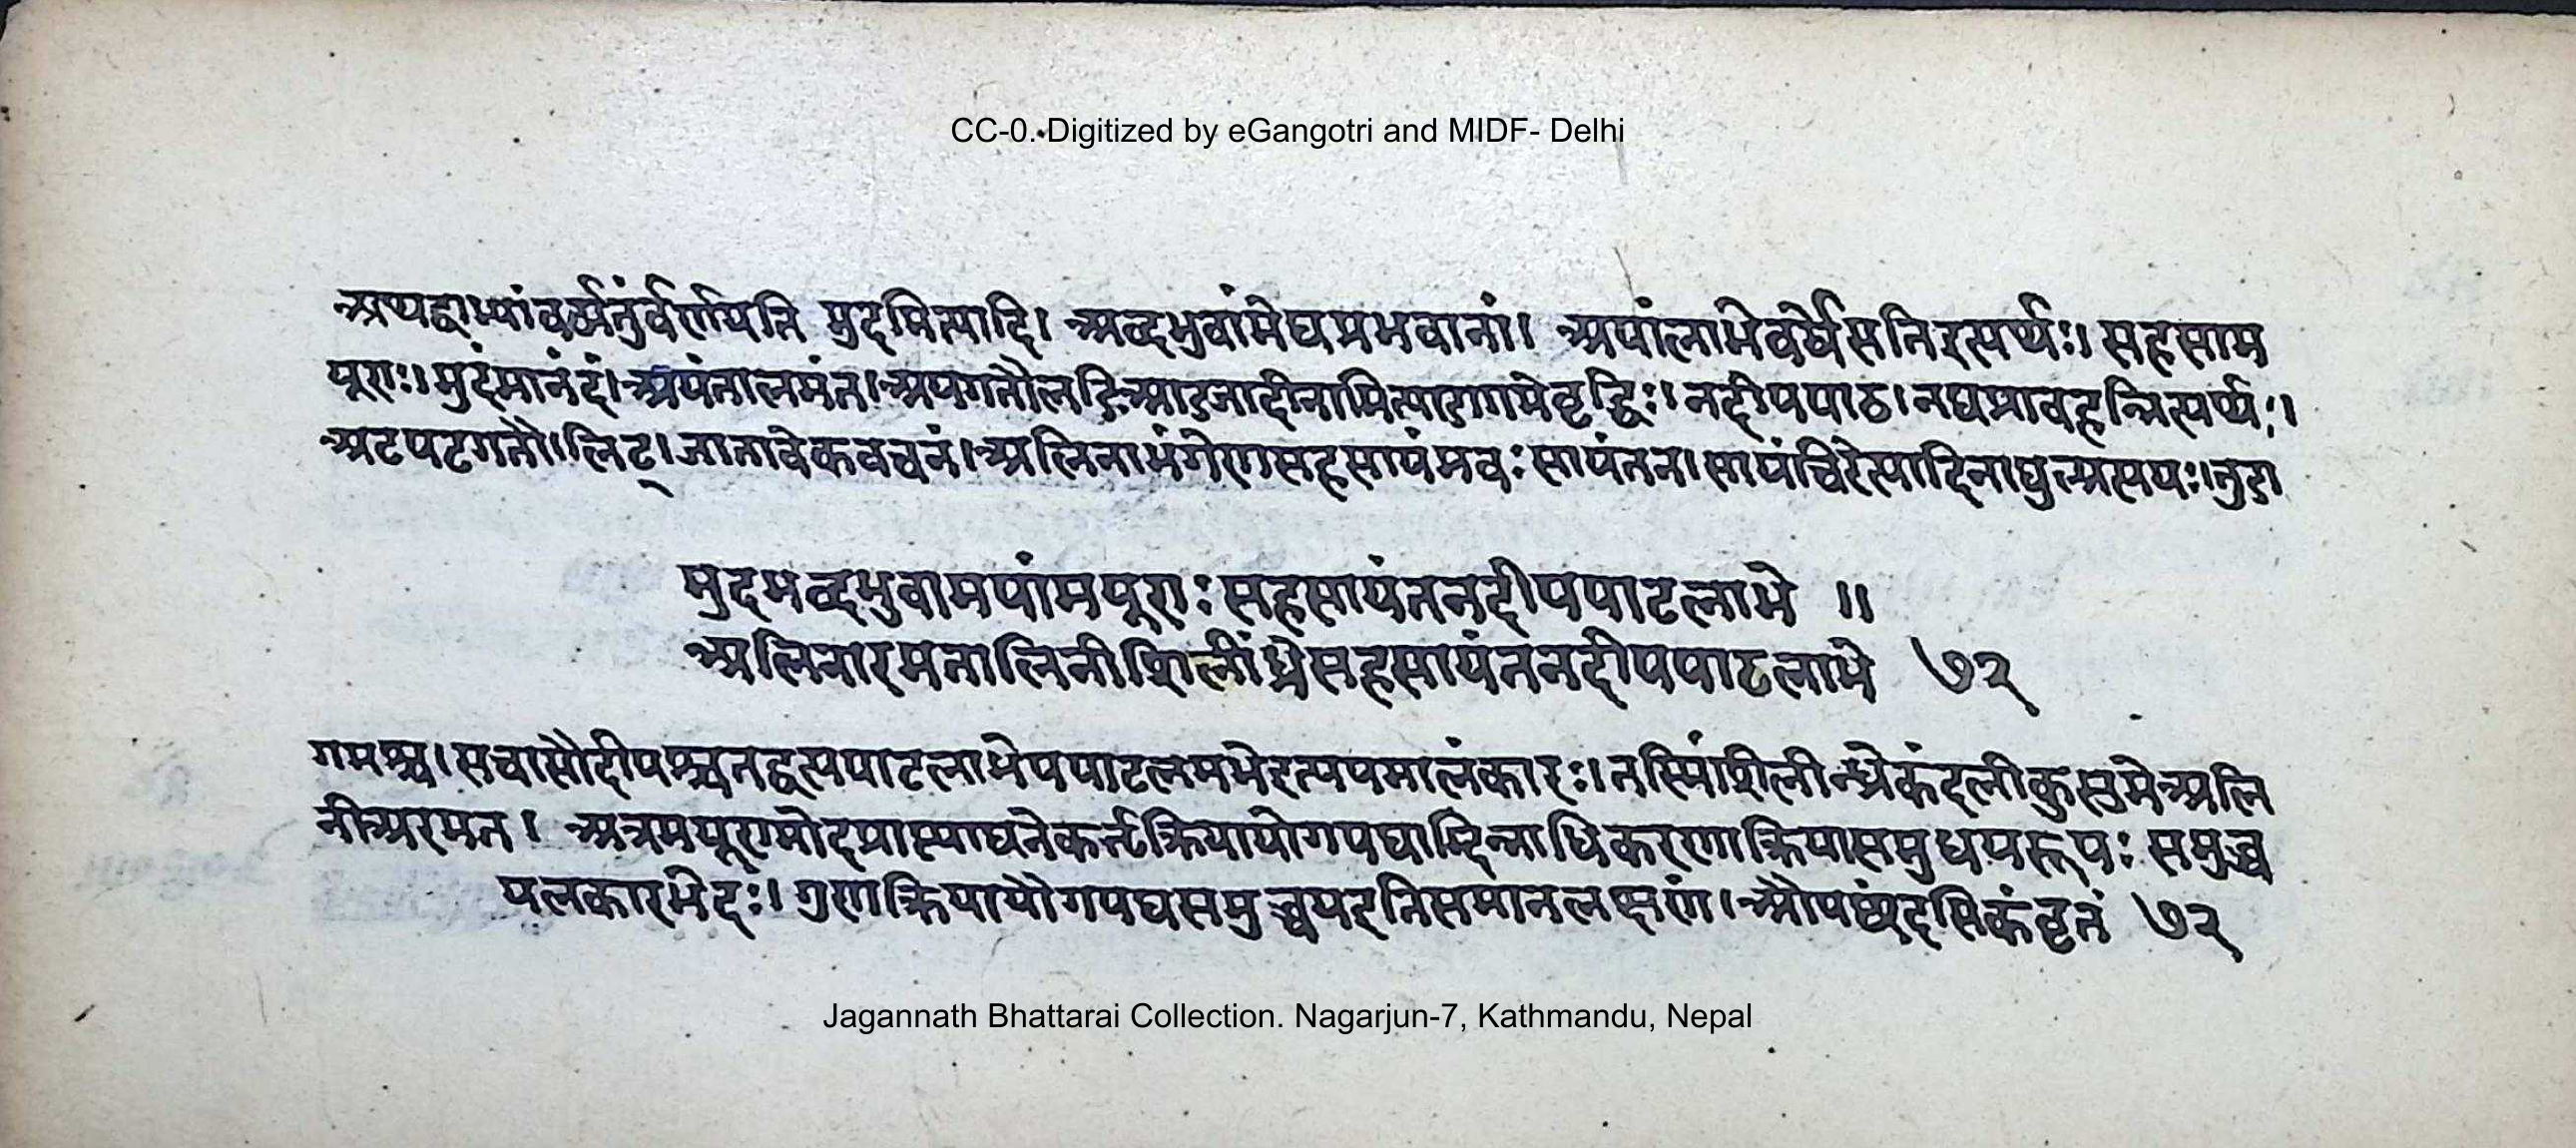 CC-0. Digitized by eGangotri and MIDF- Delhi
अथद्वाभ्यांवर्षर्तुंवर्णयति मुदमित्यादि। अब्दभुवांमेघप्रभवानां। अपांलाभेवर्षेसतिइत्यर्थः। सहसाम
यूराः। मुदंमानंदं। अयंतालमंत। अयगतौलङिआडजादीनामित्याडागमेवृद्धिः। नदीपपाठ। नद्यप्रावहन्नित्यर्थः।
अटपटगतौ। लिट्। जातावेकवचनं। अलिनाभंगेणसहसायंभवः सायंतन। सायंचिरेत्यादिनाट्युल्प्रत्ययः। तुडा
मुदमब्दभुवामपांमयूराः सहसायंतनदीपपाटलाभे ॥
अलिनारमतालिनीशिलींध्रेसहसायंतनदीपपाटलाभे ७२
गमश्च। सचासौदीपश्चतद्वत्पपाटलाभेपपाटलमभेइत्यपमालंकारः। तस्मिंशिलीन्ध्रेकंदलीकुसुमेअलि
नीअरमत। अत्रमयूराणमोदप्राप्त्याद्यनेककर्त्तृक्रियायोगपद्याद्भिन्नाधिकरणक्रियासमुच्चयरूपः समुच्च
यलकारभेदः। गुणक्रियायौगपद्यसमुच्चयइतिसमानलक्षणं। औपछंदसिकंवृतं ७२
Jagannath Bhattarai Collection. Nagarjun-7, Kathmandu, Nepal